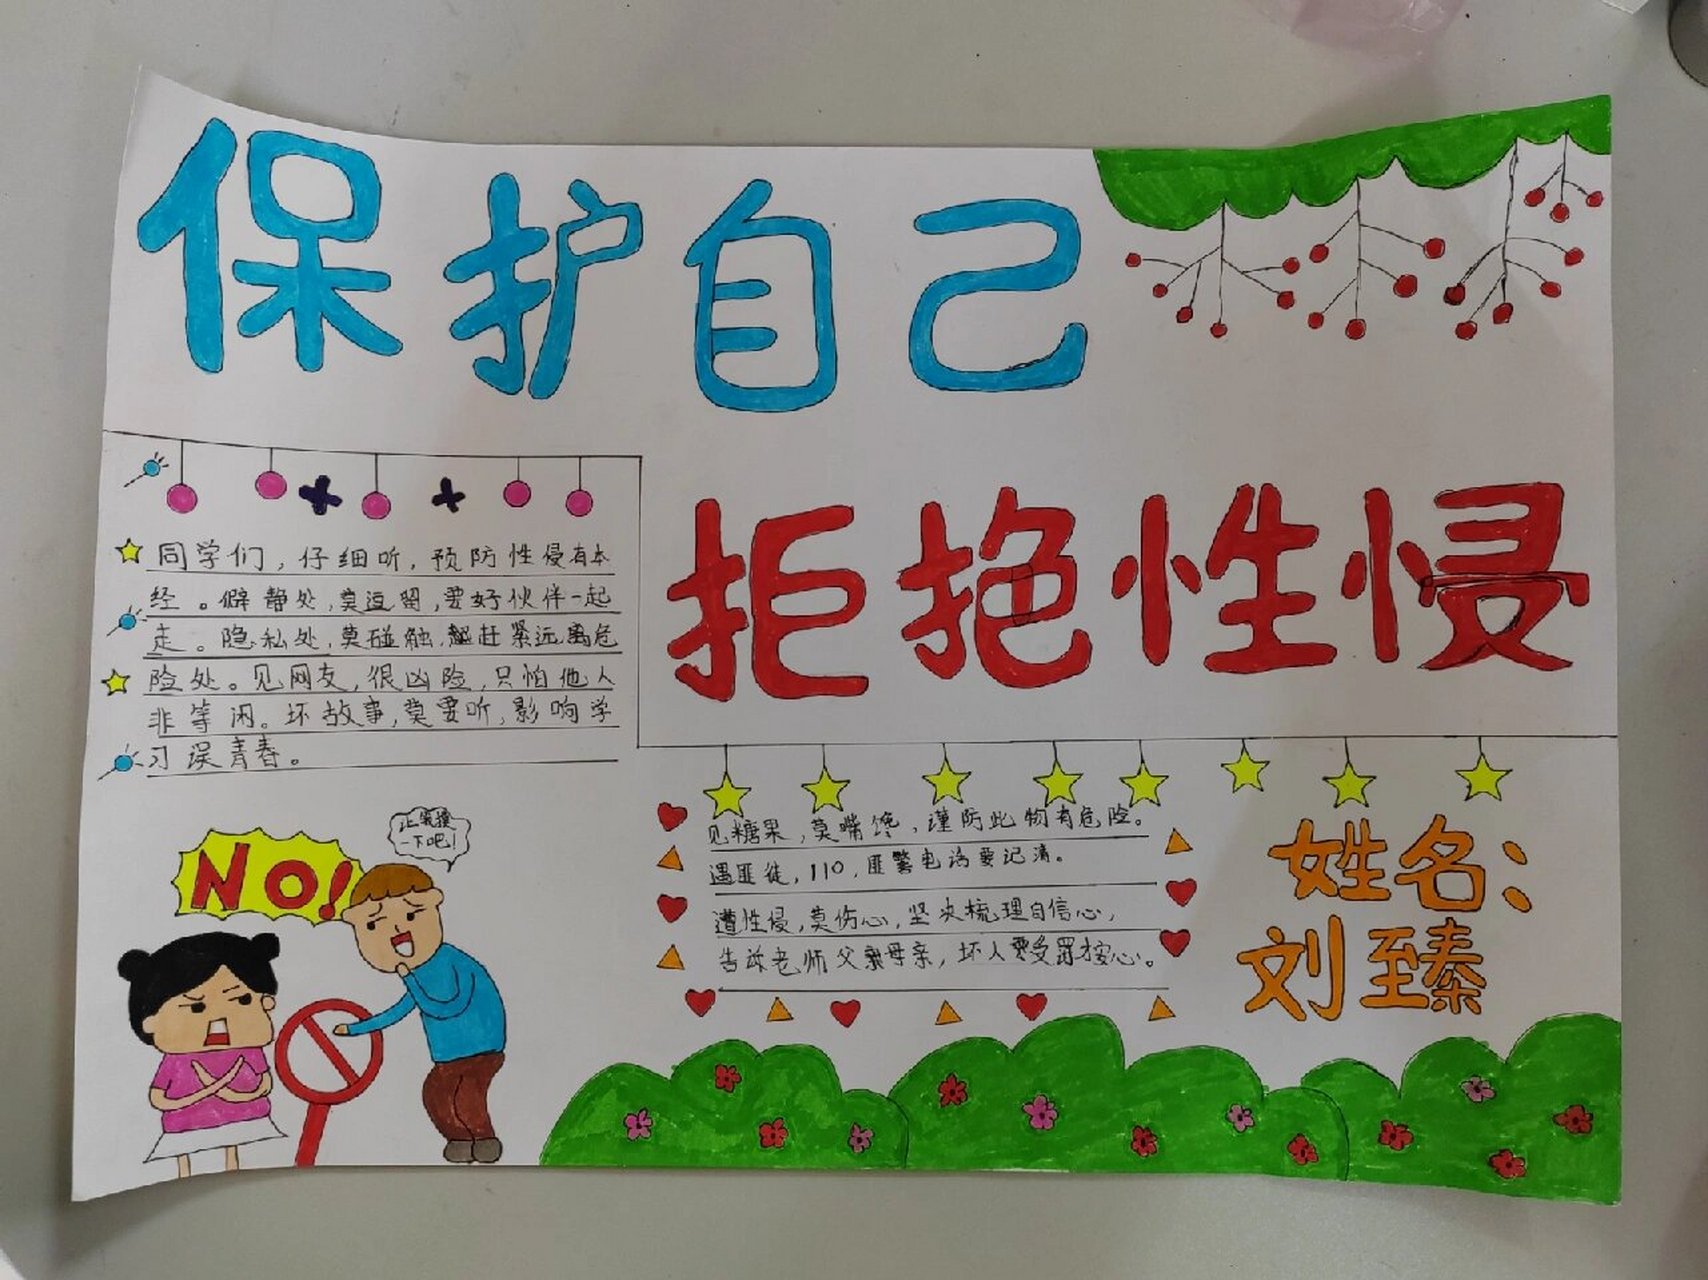 保护自己
拒绝性侵
同学们，仔细听，预防性侵有本
经。僻静处，莫逗留，要好伙伴一起
走。隐私处，莫碰触，赶紧远离危
险处。见网友，很凶险，只怕他人
非等闲。坏故事，莫要听，影响学
习误青春。
NO!
让我摸
一下吧！
见糖果，莫嘴馋，谨防此物有危险。
遇匪徒，110，匪警电话要记清。
遭性侵，莫伤心，坚决梳理自信心，
告诉老师父亲母亲，坏人要受罪才安心。
姓名：
刘至臻